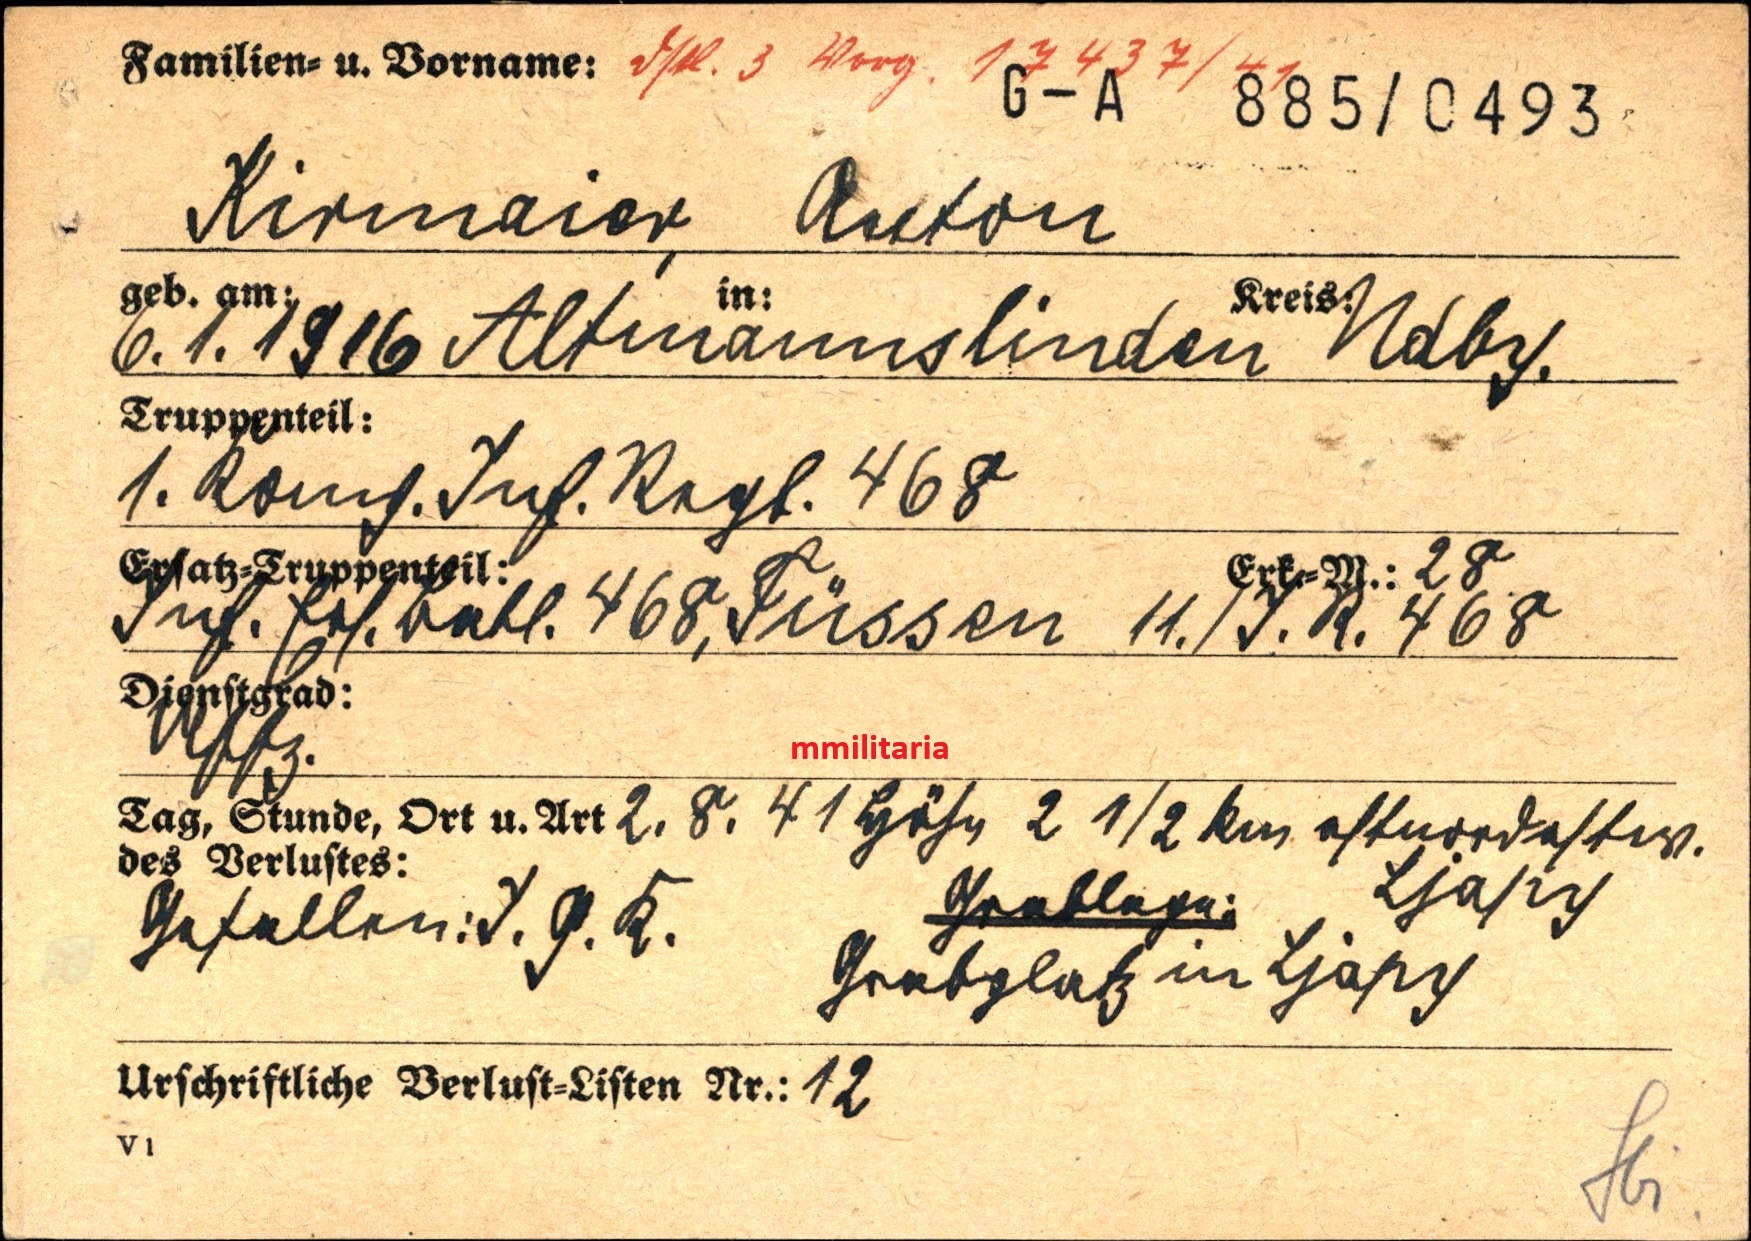 Familien- u. Vorname: 3 Vorg. 17437/41
G-A 885/0493
Kirmaier, Anton
geb. am: in: Kreis:
6.1.1916 Altmannslinden Ndby.
Truppenteil:
1. Komp. Inf. Regt. 468
Ersatz-Truppenteil: Erk.-M.: 28
Inf. Ers. Batl. 468, Füssen 11./I.R. 468
Dienstgrad:
Uffz.
mmilitaria
Tag, Stunde, Ort u. Art 2. 8. 41 Höhe 2 1/2 km ostnordostw.
des Verlustes: Ljapy
Gefallen: I. G. K. Grablage:
Grabplatz in Ljapy
Urschriftliche Verlust-Listen Nr.: 12
V 1